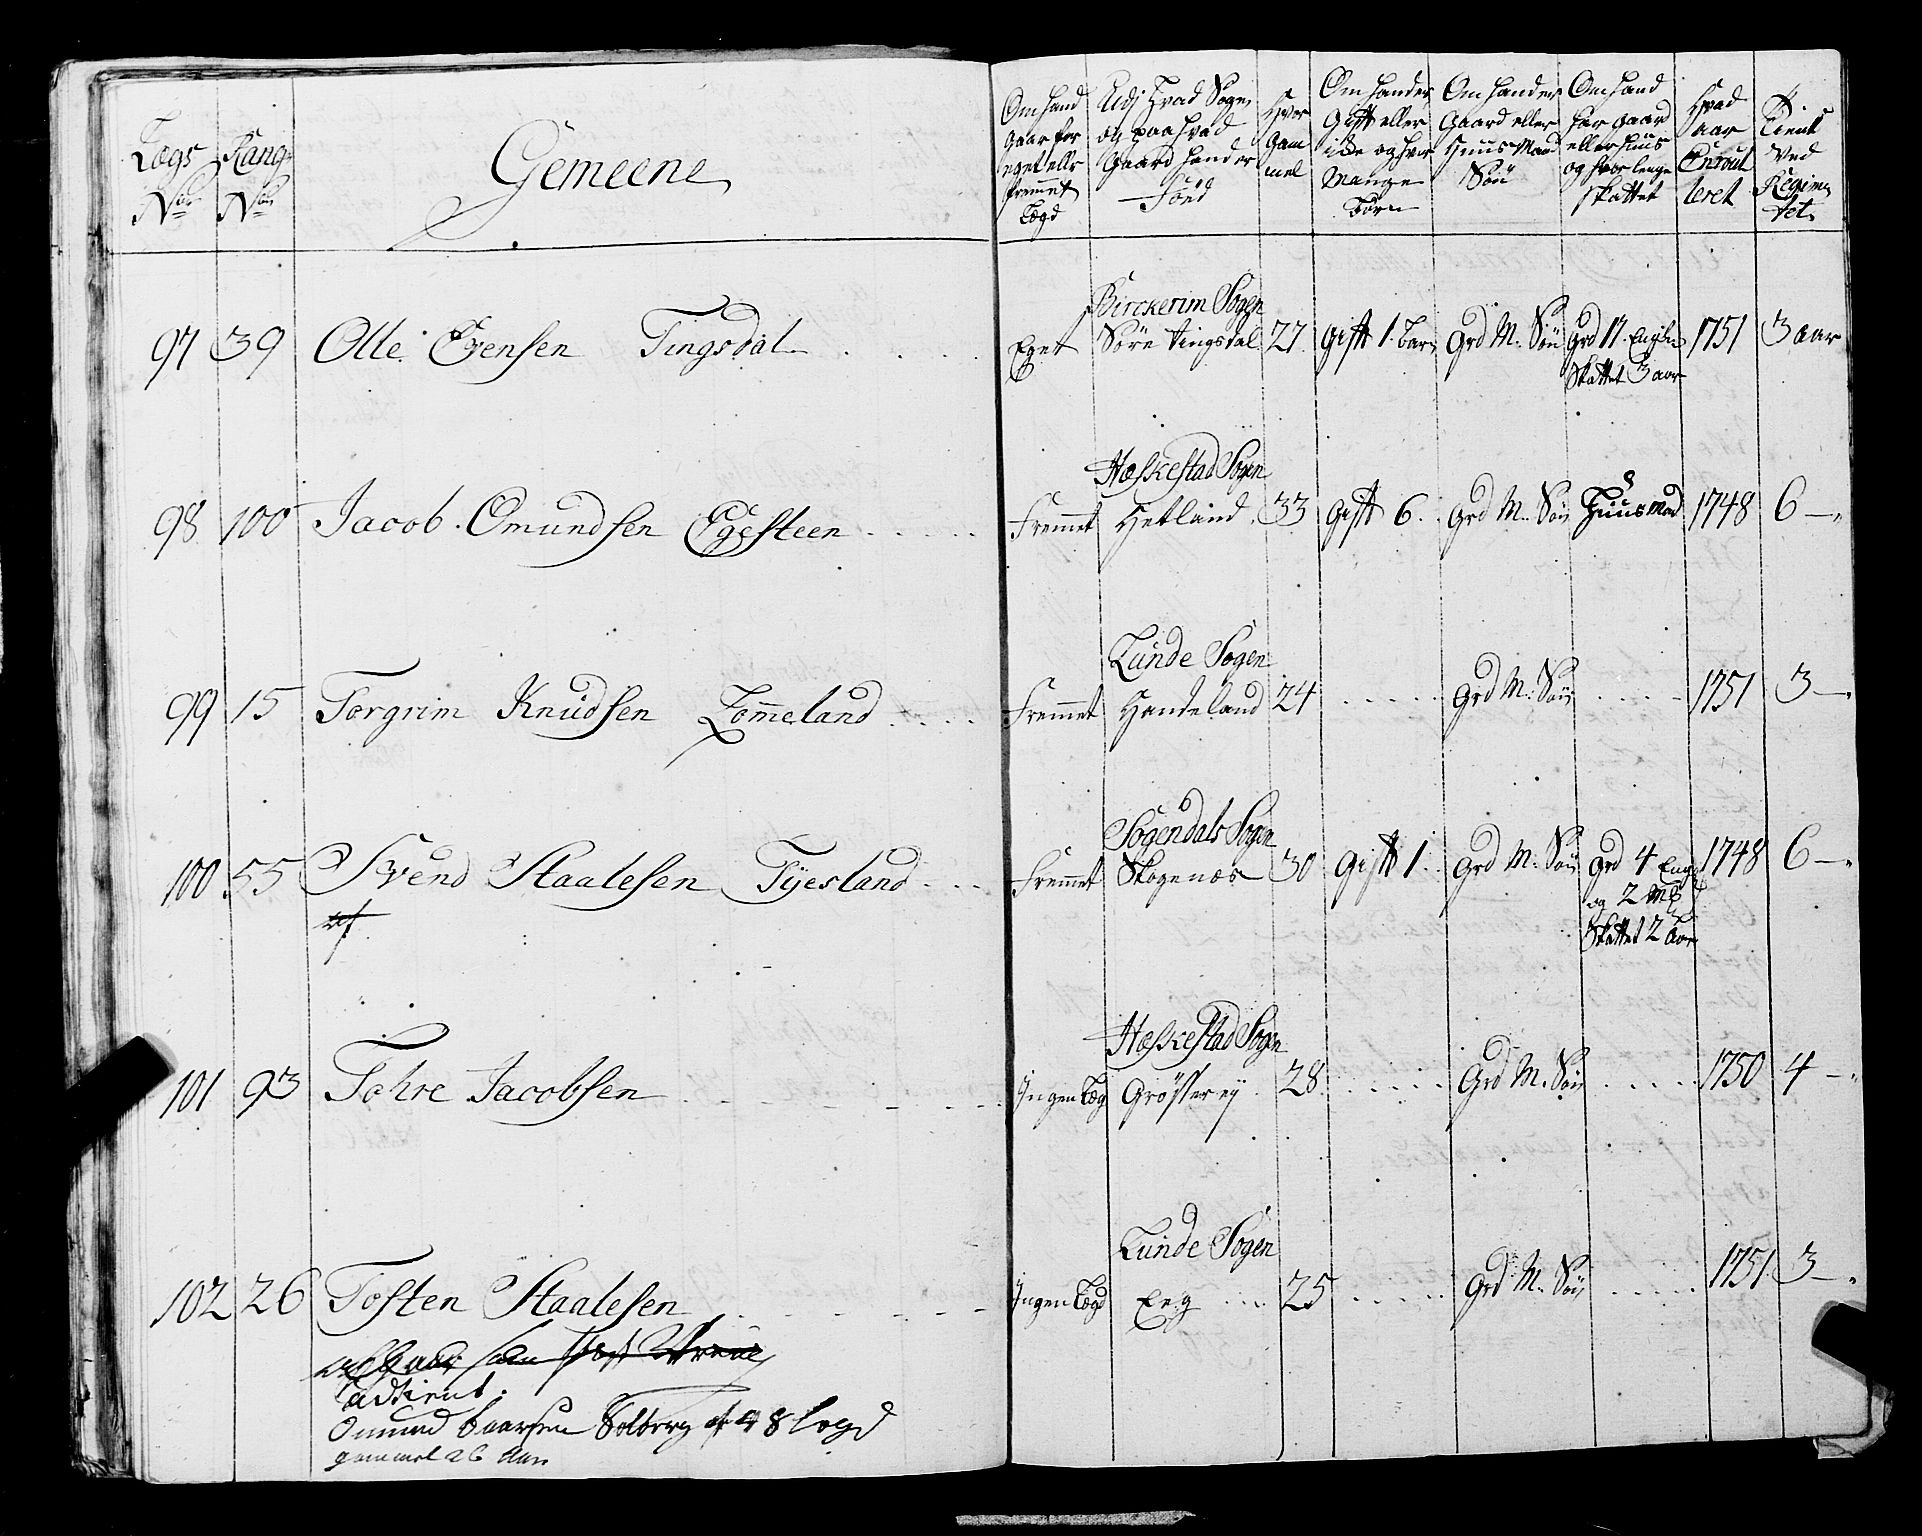 Lægs Nor
Rangs Nor
Gemeene
Om hand gaar for eget eller fremmet Lægd
Udj hvad Sogn og paa hvad Gaard hand er Fönd
Hvor Gammel
Om hand er Gift eller icke og hvor Mange Börn
Om hand er Gaard eller Huus Mand Sön
Om hand har gaard eller huus og hvor lenge skattet
Hvad aar Enroulleret
Tient Ved Regimentet
97 39 Olle Evensen Tingsdal Eget Birckerim Sogen Söre Tingsdal 27 Gift 1. Barn Grd M. Sön Grd 17. Engl: Skattet 3 aar 1751 3 aar
98 100 Jacob Omundsen Egesteen Fremmet Hæskestad Sogen Hetland 33 Gift 6. Grd M. Sön Huusmand 1748 6 —
99 15 Torgrim Knudsen Lommeland Fremmet Lunde Sogen Handeland 24 Grd M. Sön 1751 3 —
100 55 Svend Staalesen Tÿesland Fremmet Sogendals Sogen Skogenæs 30 Gift 1. Grd M. Sön Grd 4 Eng og 2 M# Skattet 2 aar 1748 6 —
af
101 93 Tohre Jacobsen Ingen Læg Hæskestad Sogen Grösserej 28 Grd M. Sön 1750 4 —
102 26 Tosten Staalesen Ingen Lægd Lunde Sogen Eeg 25 Grd M. Sön 1751 3 —
udtient.
Omund Baarsen Solberg af 48 lægd
gammel 26 Aar